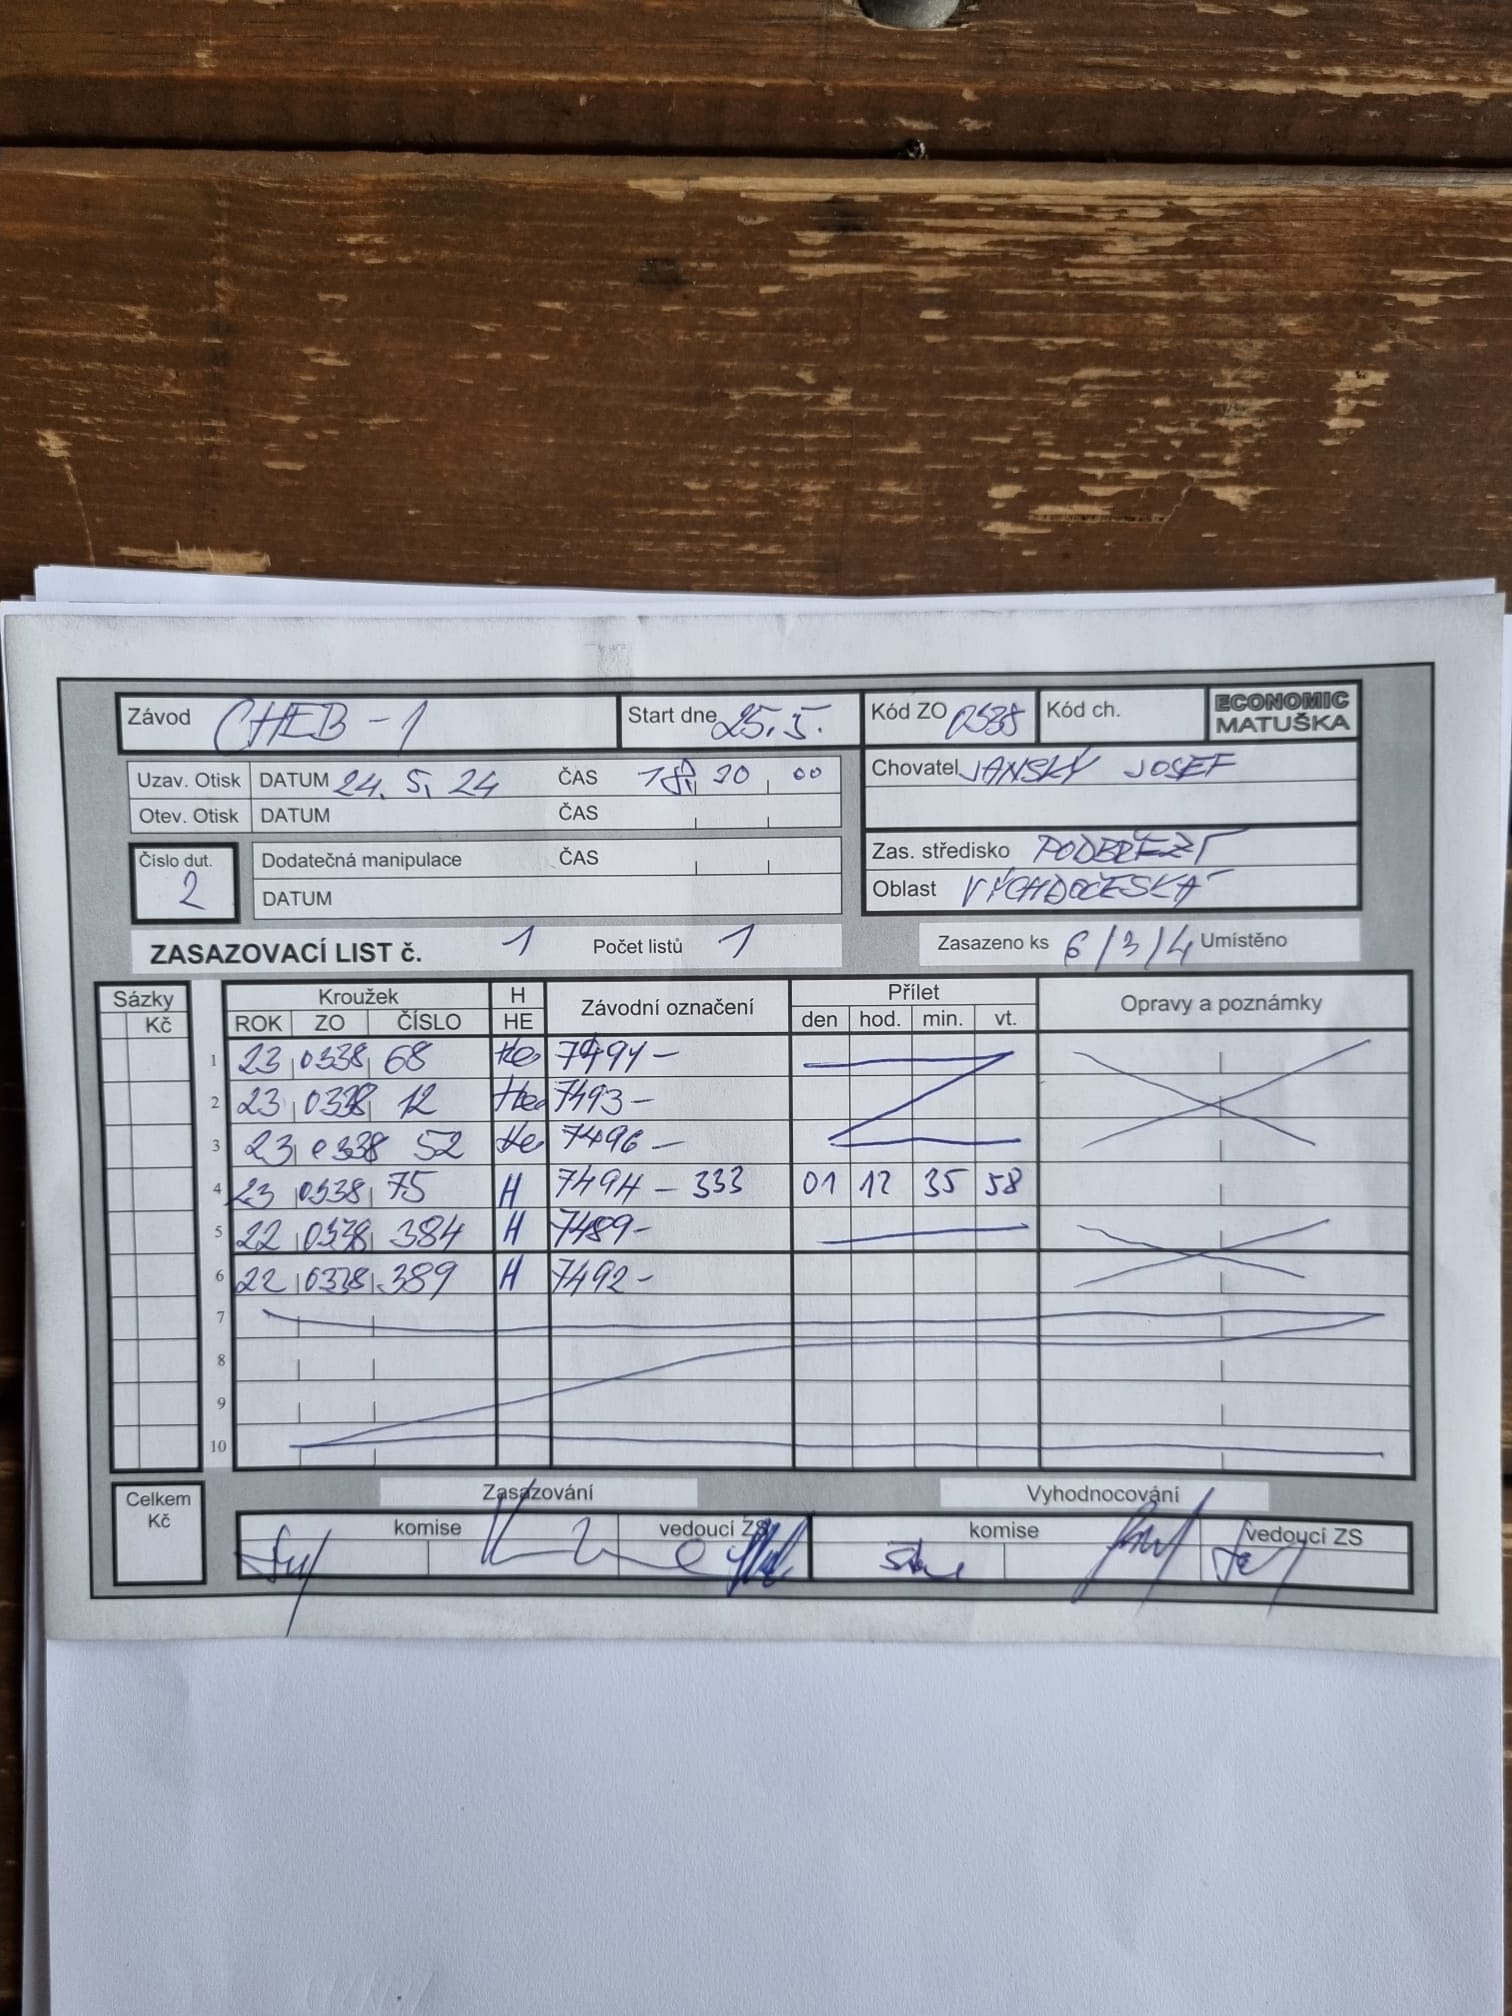 Závod CHEB-1 Start dne 25.5. Kód ZO 0338 Kód ch. ECONOMIC MATUŠKA
Uzav. Otisk DATUM 24. 5. 24 ČAS 18 20 00
Chovatel JANSKÝ JOSEF
Otev. Otisk DATUM ČAS
Číslo dut. 2
Dodatečná manipulace ČAS
DATUM
Zas. středisko PODBŘEZÍ
Oblast VÝCHDOČESKÁ
ZASAZOVACÍ LIST č. 1 Počet listů 1 Zasazeno ks 6/3/4 Umístěno
Sázky Kroužek H Závodní označení Přílet Opravy a poznámky
Kč ROK ZO ČÍSLO HE den hod. min. vt.
1 23 0338 68 He 7491-
2 23 0338 12 7493-
3 23 0338 52 He 7496-
4 23 0338 75 H 7494-333 01 12 35 58
5 22 0338 384 H 7489-
6 22 0338 389 H 7492-
7
8
9
10
Celkem Kč
Zasazování Vyhodnocování
komise vedoucí ZS komise vedoucí ZS